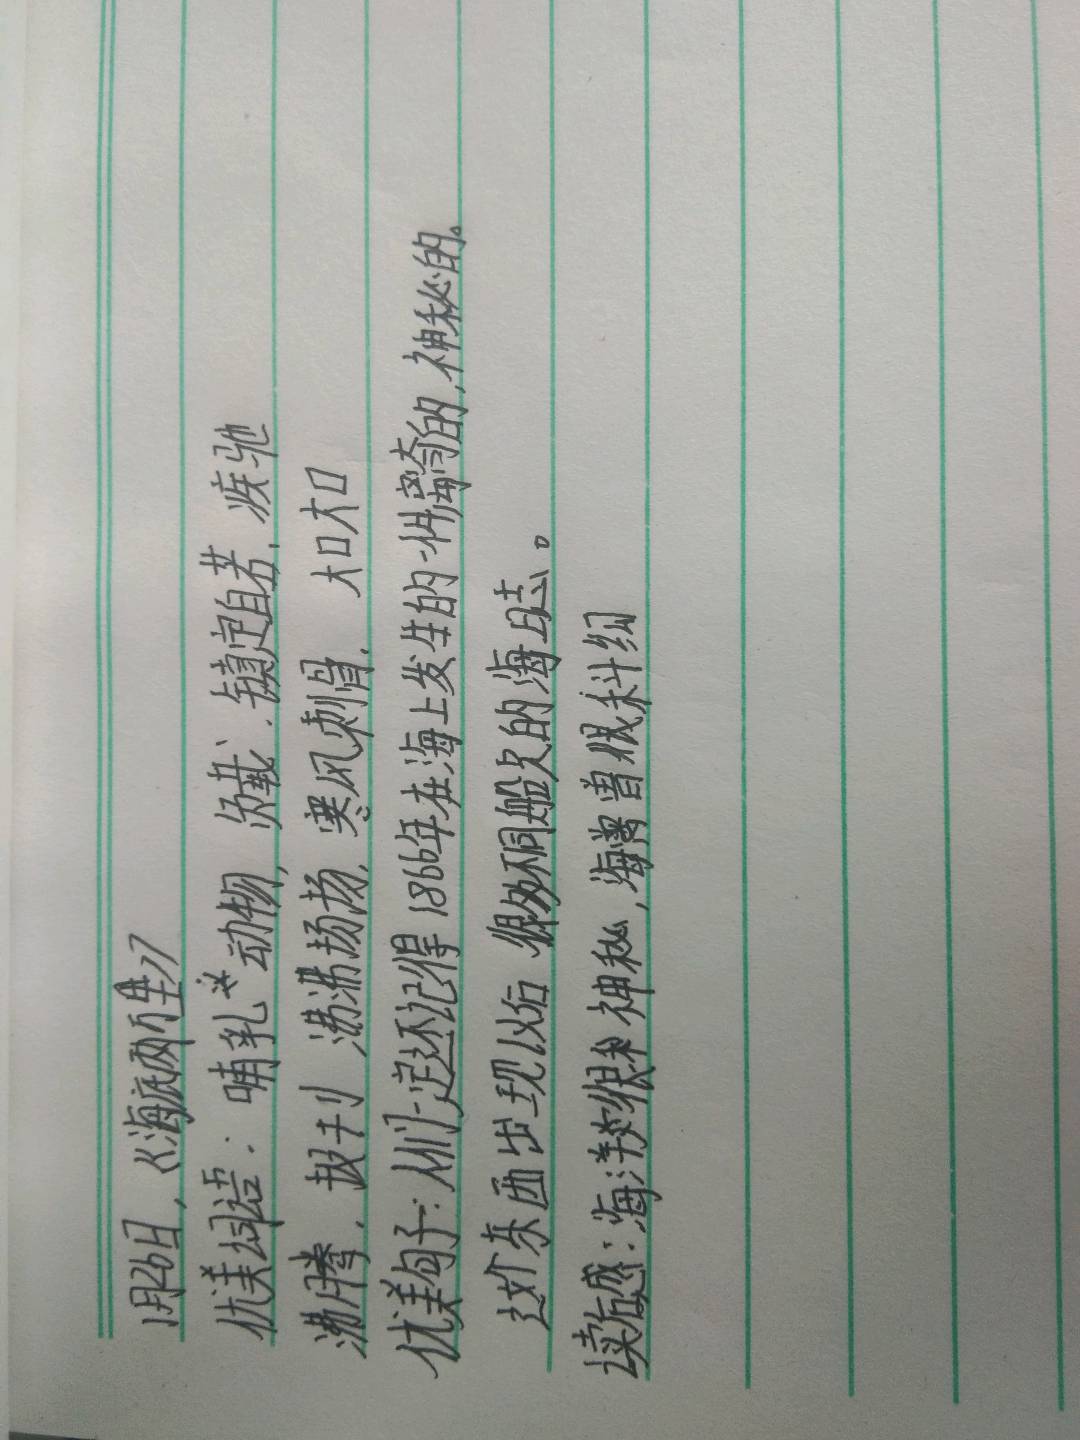 1月26日，《海底两万里》
优美词语：哺乳动物，负载、镇定自若、疾驰
沸腾、披 沸沸扬扬、寒风刺骨、大口大口
优美句子：人们一定还记得1866年在海上发生的一件离奇的，神秘的。
这个东西出现以后 很多不同船次的海 志。
读后感：海洋很神秘，海兽很